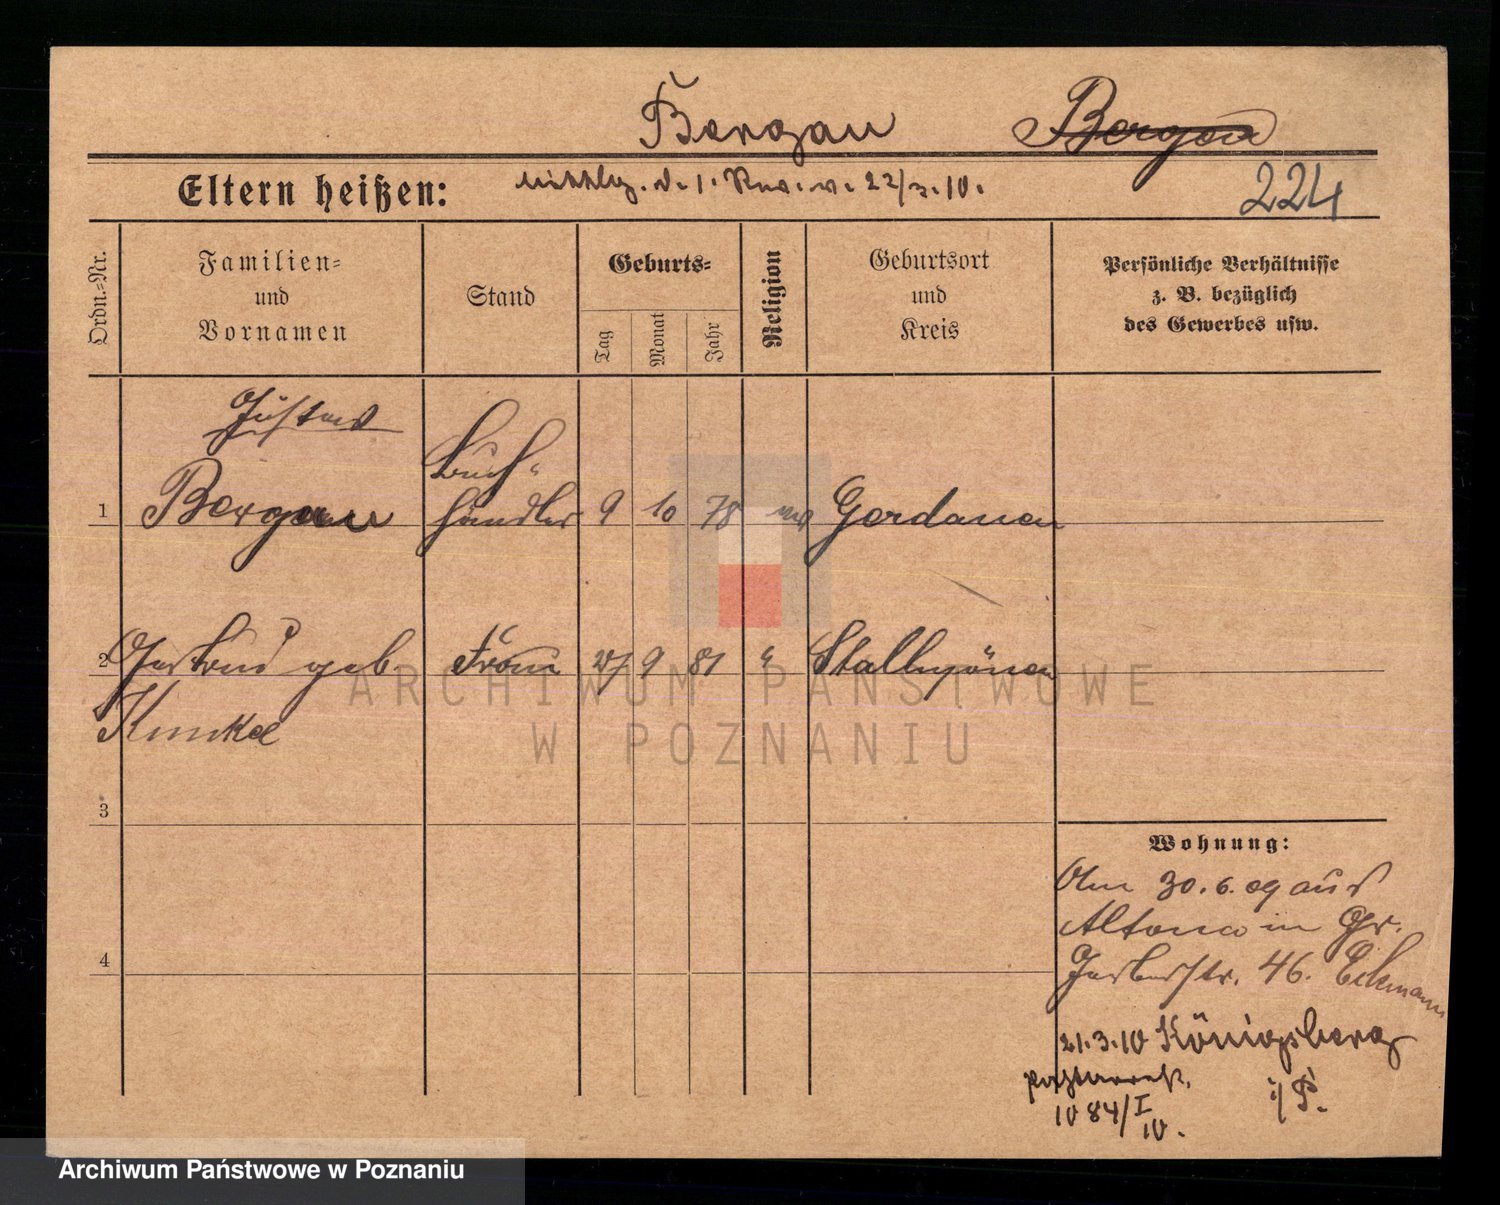 Bergau Bergau
Eltern heißen: v. 22/3.10.
224
Ordn.=Nr.
Familien=
und
Vornamen
Stand
Geburts=
Tag
Monat
Jahr
Religion
Geburtsort
und
Kreis
Persönliche Verhältnisse
z. B. bezüglich
des Gewerbes usw.
Gustav
1 Bergau Buch-
händler 9 10 78 ev Gerdauen
2 Gertrud geb. Frau 27 9 81 " Stallupönen
Kunkel
3
4
Wohnung:
Am 30.6.09 aus
Altona in Gr.
Gerberstr. 46. Eckmann
21.3.10 Königsberg
i/P.
1084/I
10.
ARCHIWUM PAŃSTWOWE
W POZNANIU
Archiwum Państwowe w Poznaniu